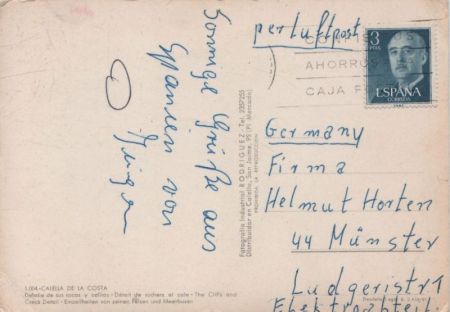 Sonnige Grüße aus
Spanien von
Jürgen
per Luftpost
AHORROS
CAJA
3
PTAS
ESPAÑA
CORREOS
Fotografia Industrial RODRIGUEZ - Tel. 2357255
Distribuidor en Calella, San Jaime, 95 (P. Mercado)
PROHIBIDA LA REPRODUCCION
Germany
Firma
Helmut Horten
44 Münster
Ludgeristr 1
Elektroabteil
1.004.-CALELLA DE LA COSTA
Detalle de sus rocas y calitas - Détail de rochers et cale - The Cliffs and
Creek Detail - Einzelheiten von seinen Felsen und Meerbusen